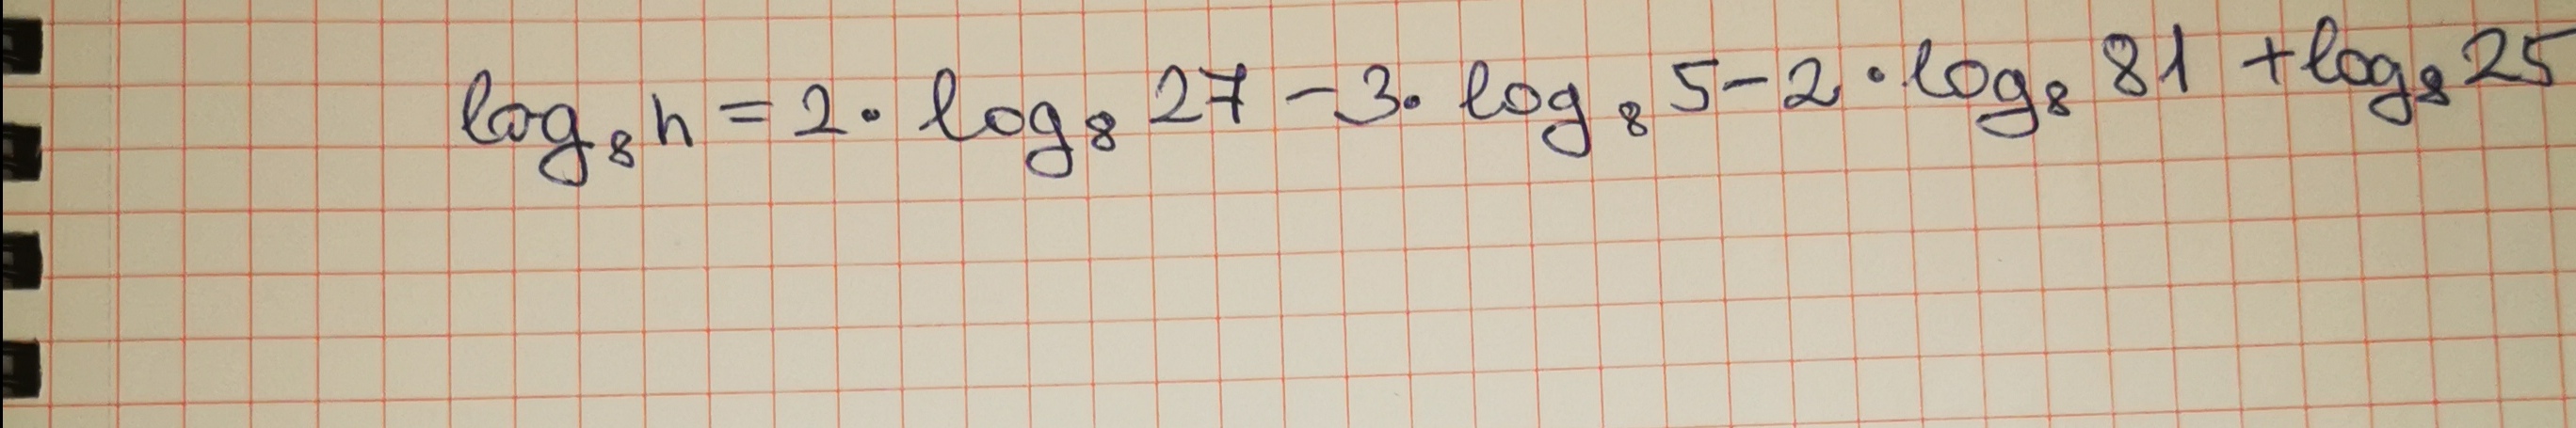 log₈h = 2· log₈ 27 - 3· log₈ 5 - 2 · log₈ 81 + log₈ 25